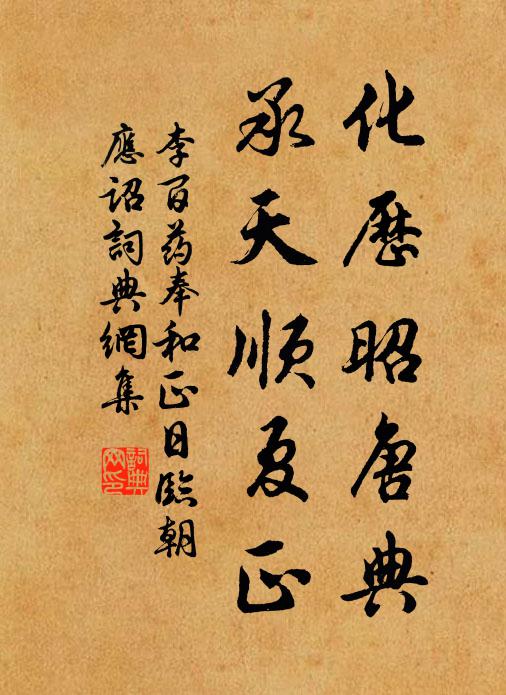 化歷昭唐典
承天順夏正
李百药奉和正日臨朝
應詔詞典網集
詞典網印